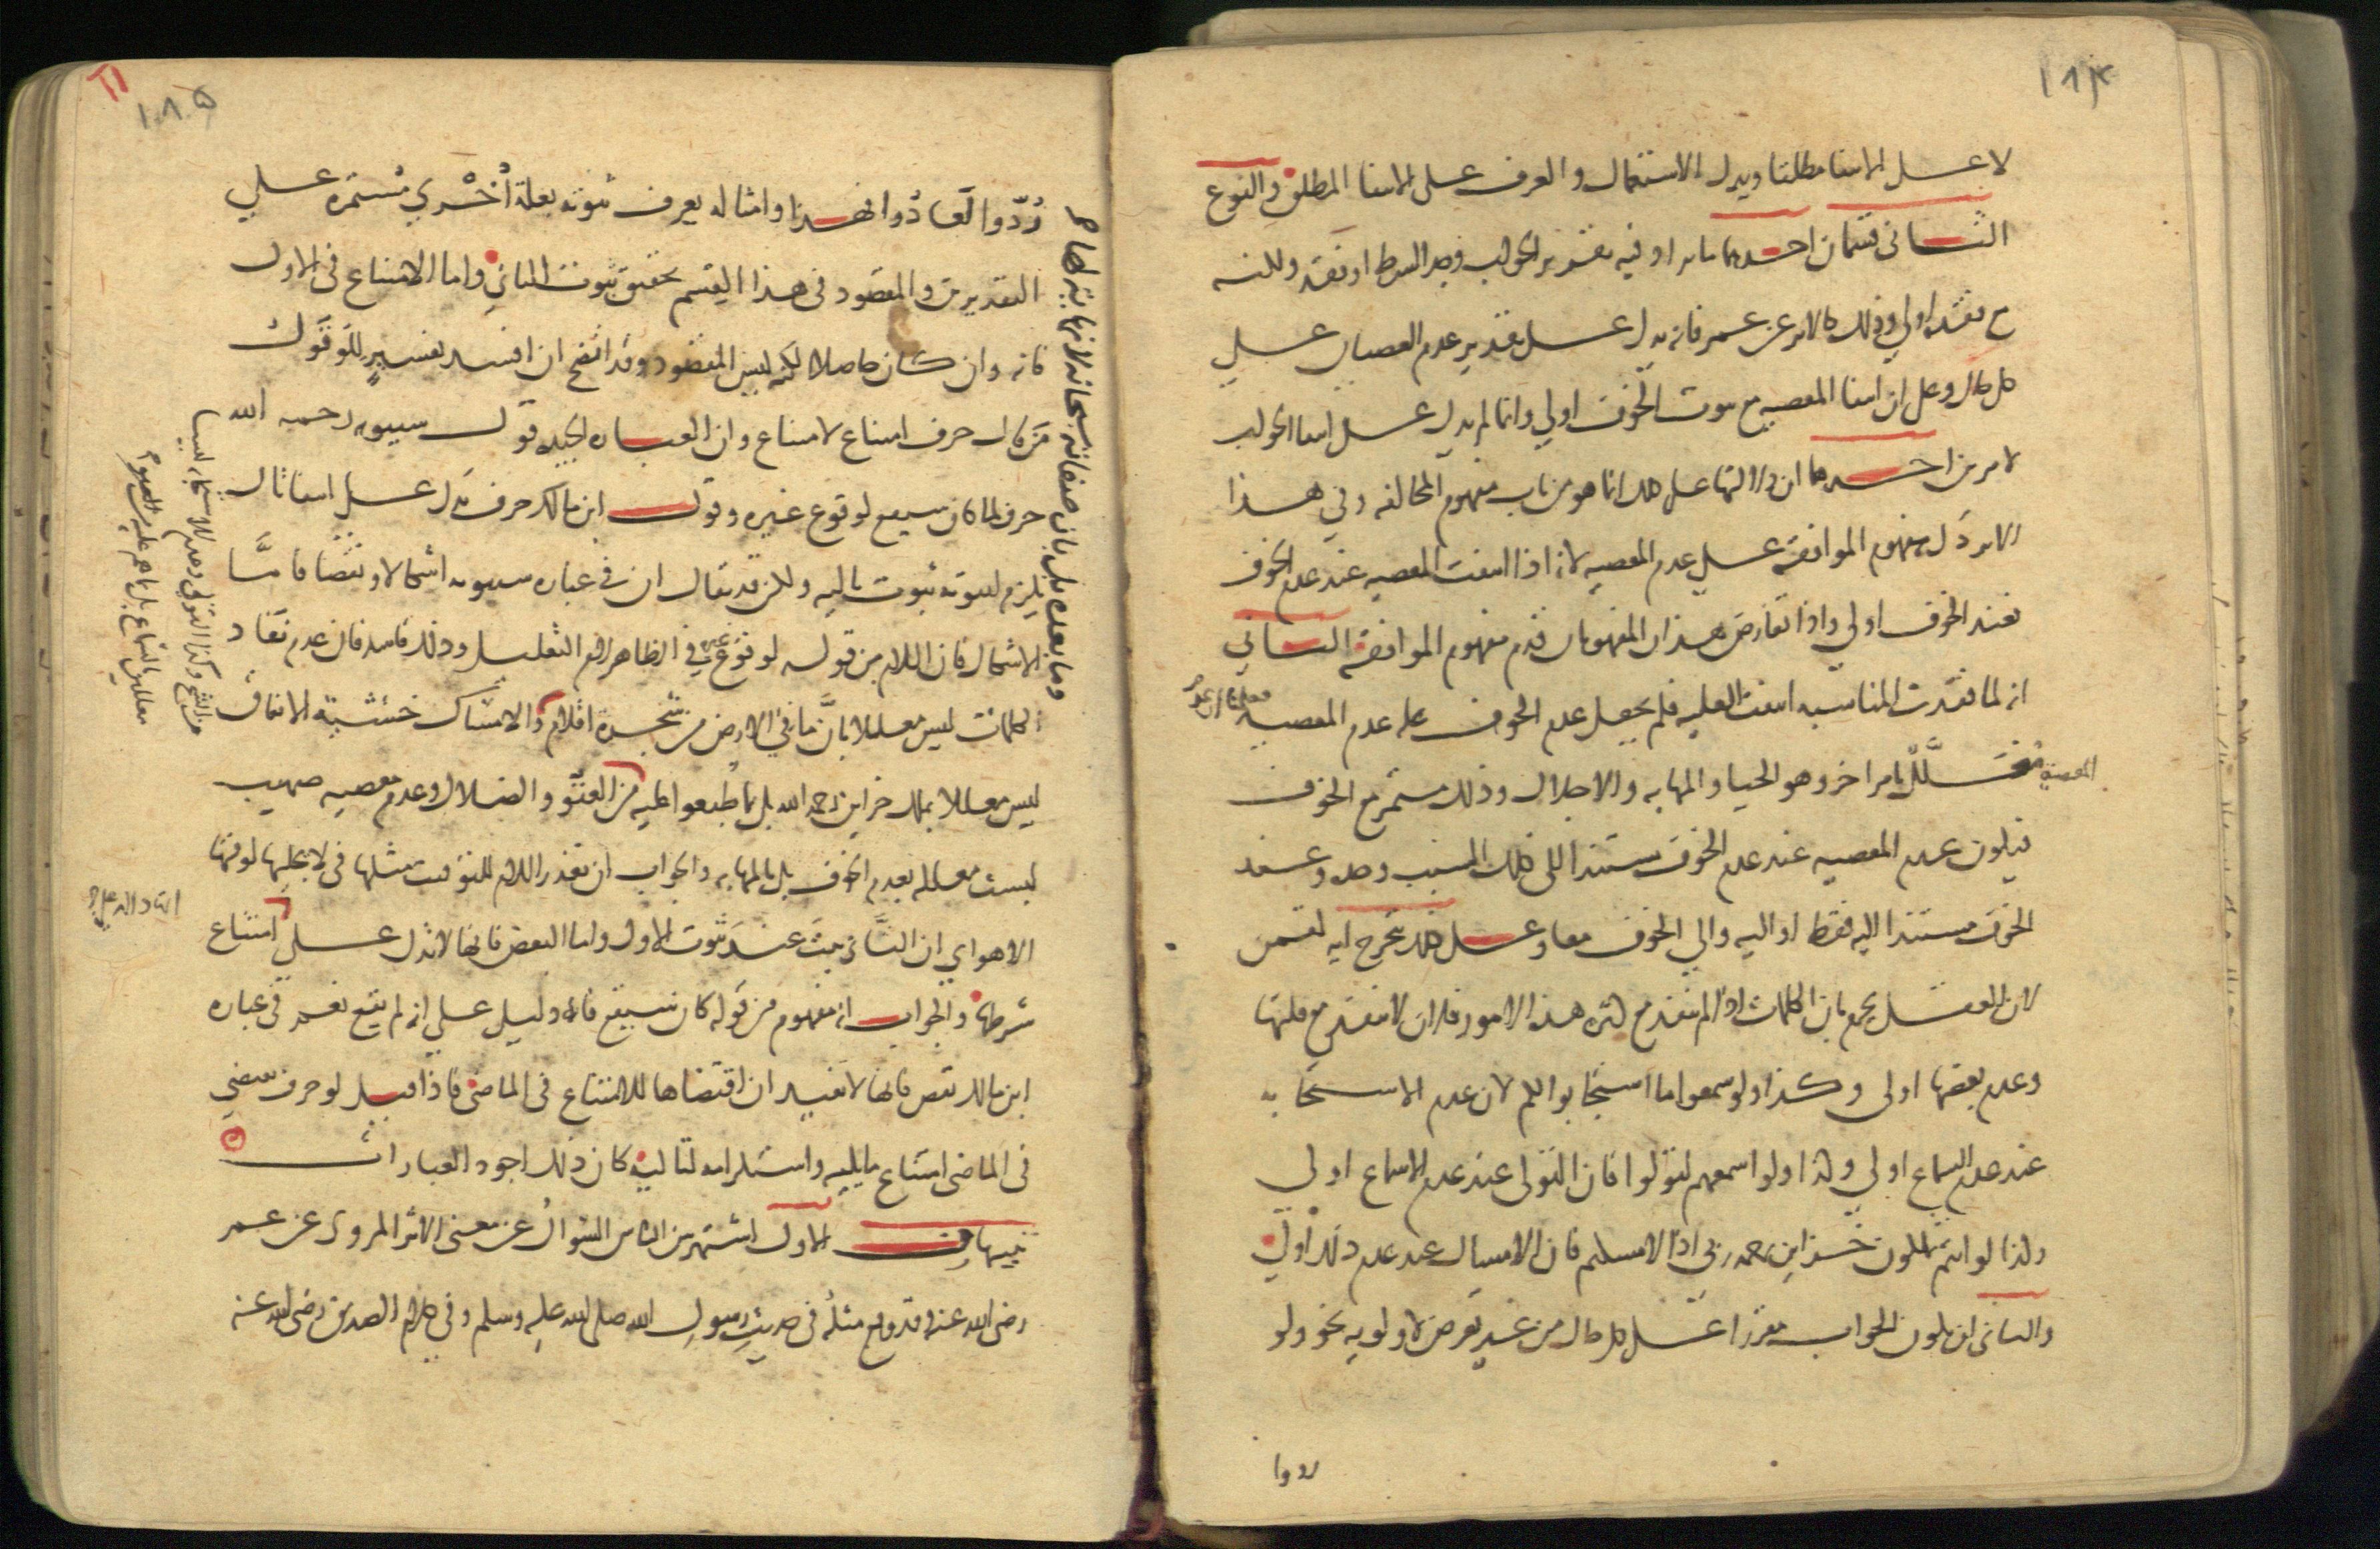 ١٨٤
لا على الانتفا مطلقا ويدل الاستعمال والعرف على الانتفا المطلق والنوع
الثاني قسمان احدهما ما يراد فيه تقرير الجواب وجد الشرط او فقد ولكنه
مع فقده اولي وذلك كالاثر عن عمر فانه يدل على تقدير عدم العصيان على
كل حال وعلى ان انتفا المعصيه مع ثبوت الخوف اولي وانما لم يدل على انتفا الجواب
لامرين احدهما ان دلالتها على ذلك انما هو من باب مفهوم المخالفه وفي هذا
الاثر دل مفهوم الموافقة على عدم المعصيه لانه اذا انتفت المعصيه عند عدم الخوف
فعند الخوف اولي واذا تعارض هذان المفهومان قدم مفهوم الموافقة الثاني
انه لما فقدت المناسبه انتفت العليه فلم يجعل عدم الخوف عله عدم المعصيه
فعلمنا ان عدم
المعصية معلَّل بامر اخر وهو الحيا والمهابه والاجلال وذلك مستمر مع الخوف
فيكون عدم المعصيه عند عدم الخوف مستندا الى ذلك السبب وحده وعند
الخوف مستندا اليه فقط او اليه والي الخوف معا وعلى ذلك تتخرج ايه لقمن
لان العقل يجزم بان الكلمات اذا لم تنفد مع كثره هذه الامور فلان لا تنفد مع قلتها
وعدم بعضها اولى وكذا ولو سمعوا ما استجابوا لكم لان عدم الاستجابه
عند عدم السماع اولي وكذا ولو اسمعهم لتولوا فان التولى عند عدم الاسماع اولى
وكذا لو انتم تملكون خزاين رحمه ربي اذا لامسكتم فان الامساك عند عدم ذلك اولي
والثانى ان يكون الجواب مقررا على كل حال من غير تعرض لاولويه نحو ولو
ردوا
١٨٥
رُدّوا لَعَادُوا فهذا وامثاله يعرف ثبوته بعلة اُخْري مُستمرة على
التقديرين والمقصود في هذا القسم تحقيق ثبوت الثاني واما الامتناع في الاول
فانه وان كان حاصلا لكنه ليس المقصود وقد اتضح ان افسد تفسير للو قول
من قال حرف امتناع لامتناع وان العباره الجيده قول سيبويه رحمه الله
حرف لما كان سيقع لوقوع غيره وقول ابن مالك حرف يدل على انتفا تال
يلزم لثبوته ثبوت تاليه ولكن قد يقال ان في عباره سيبويه اشكالا ونقصا فامَّا
الاشكال فان اللام من قوله لوقوع غيره في الظاهر لام التعليل وذلك فاسد فان عدم نفاد
الكلمات ليس معللا بانَّ ما في الارض من شجرة اقلام والامساك خشية الانفاق
ليس معللا بملكهم خزاين رحمه الله بل بما طُبعوا عليه من الشح وكذا التولي وعدم الاستجابه ليسا معللين بالسماع بل بما هم عليه من العتوّ والضلال وعدم معصيه صهيب
ليست معلله بعدم الخوف بل بالمهابه والجواب ان تقدر اللام للتوقيت مثلها في لا يجليها لوقتها
الاهو اي ان الثاني يثبت عند ثبوت الاول واما النقص فانها لا تدل على امتناع
شرطها والجواب انه مفهوم من قوله كان سيقع فانه دليل على انه لم يقع نعم في عباره
ابن مالك نقص فانها لا تفيد ان اقتضاها للامتناع في الماضي فاذا قيل لو حرف يقتضي
فى الماضي امتناع ما يليه واستلزامه لتاليه كان ذلك اجود العبارات
تنبيهان الاول اشتهر بين الناس السُّوال عن معنى الاثر المروى عن عمر
رضى الله عنه وقد وقع مثله في حديث رسول الله صلى الله عليه وسلم وفي كلام الصديق رضى الله عنه